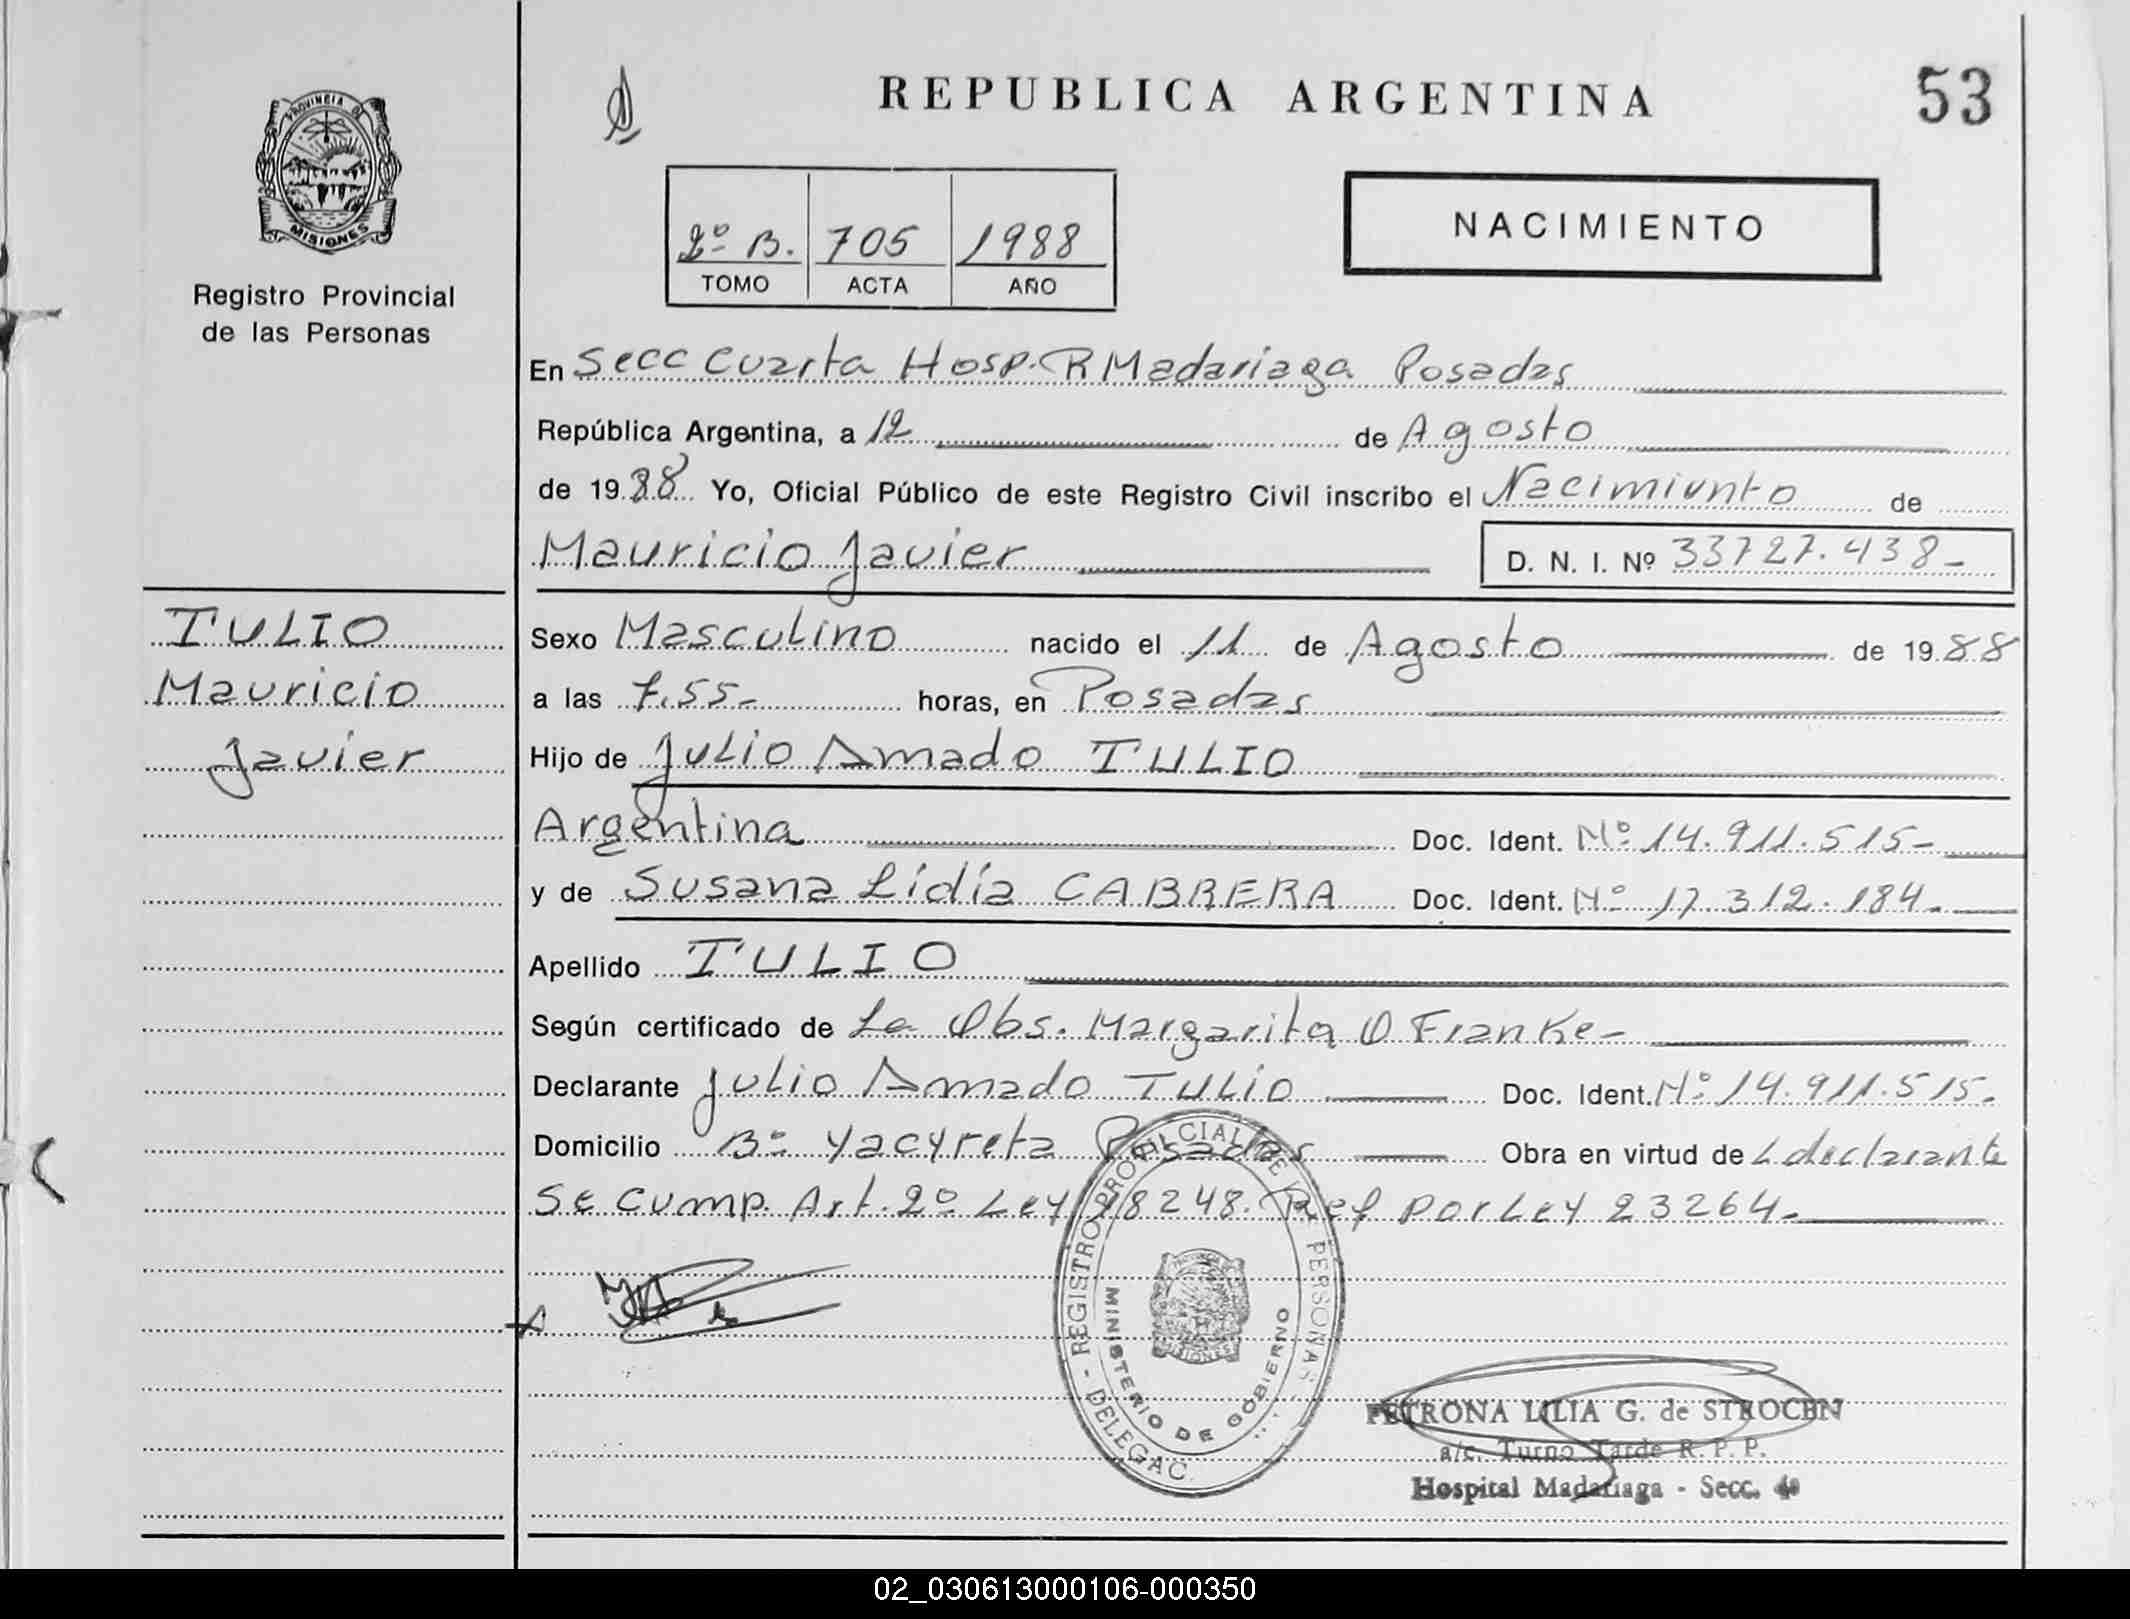 REPUBLICA ARGENTINA
53
PROVINCIA DE
MISIONES
Registro Provincial
de las Personas
2º B. 705 1988
TOMO ACTA AÑO
NACIMIENTO
En Secc Cuarta Hosp. R Madariaga Posadas
República Argentina, a 12 de Agosto
de 1988 Yo, Oficial Público de este Registro Civil inscribo el Nacimiento de
Mauricio Javier D. N. I. Nº 33727.438-
TULIO
Mauricio
Javier
Sexo Masculino nacido el 11 de Agosto de 1988
a las 7.55- horas, en Posadas
Hijo de Julio Amado TULIO
Argentina Doc. Ident. Nº 14.911.515-
y de Susana Lidia CABRERA Doc. Ident. Nº 17.312.184-
Apellido TULIO
Según certificado de La Obs. Margarita O Franke-
Declarante Julio Amado TULIO Doc. Ident. Nº 14.911.515-
Domicilio Bº Yacyreta Posadas Obra en virtud de L declarante
Se Cump. Art. 2º Ley 18248. Ref por Ley 23264-
REGISTRO PROVINCIAL DE PERSONAS - DELEGAC.
MINISTERIO DE GOBIERNO
MISIONES
PETRONA LILIA G. de STROCEN
a/c. Turno Tarde R. P. P.
Hospital Madariaga - Secc. 4ª
02_030613000106-000350